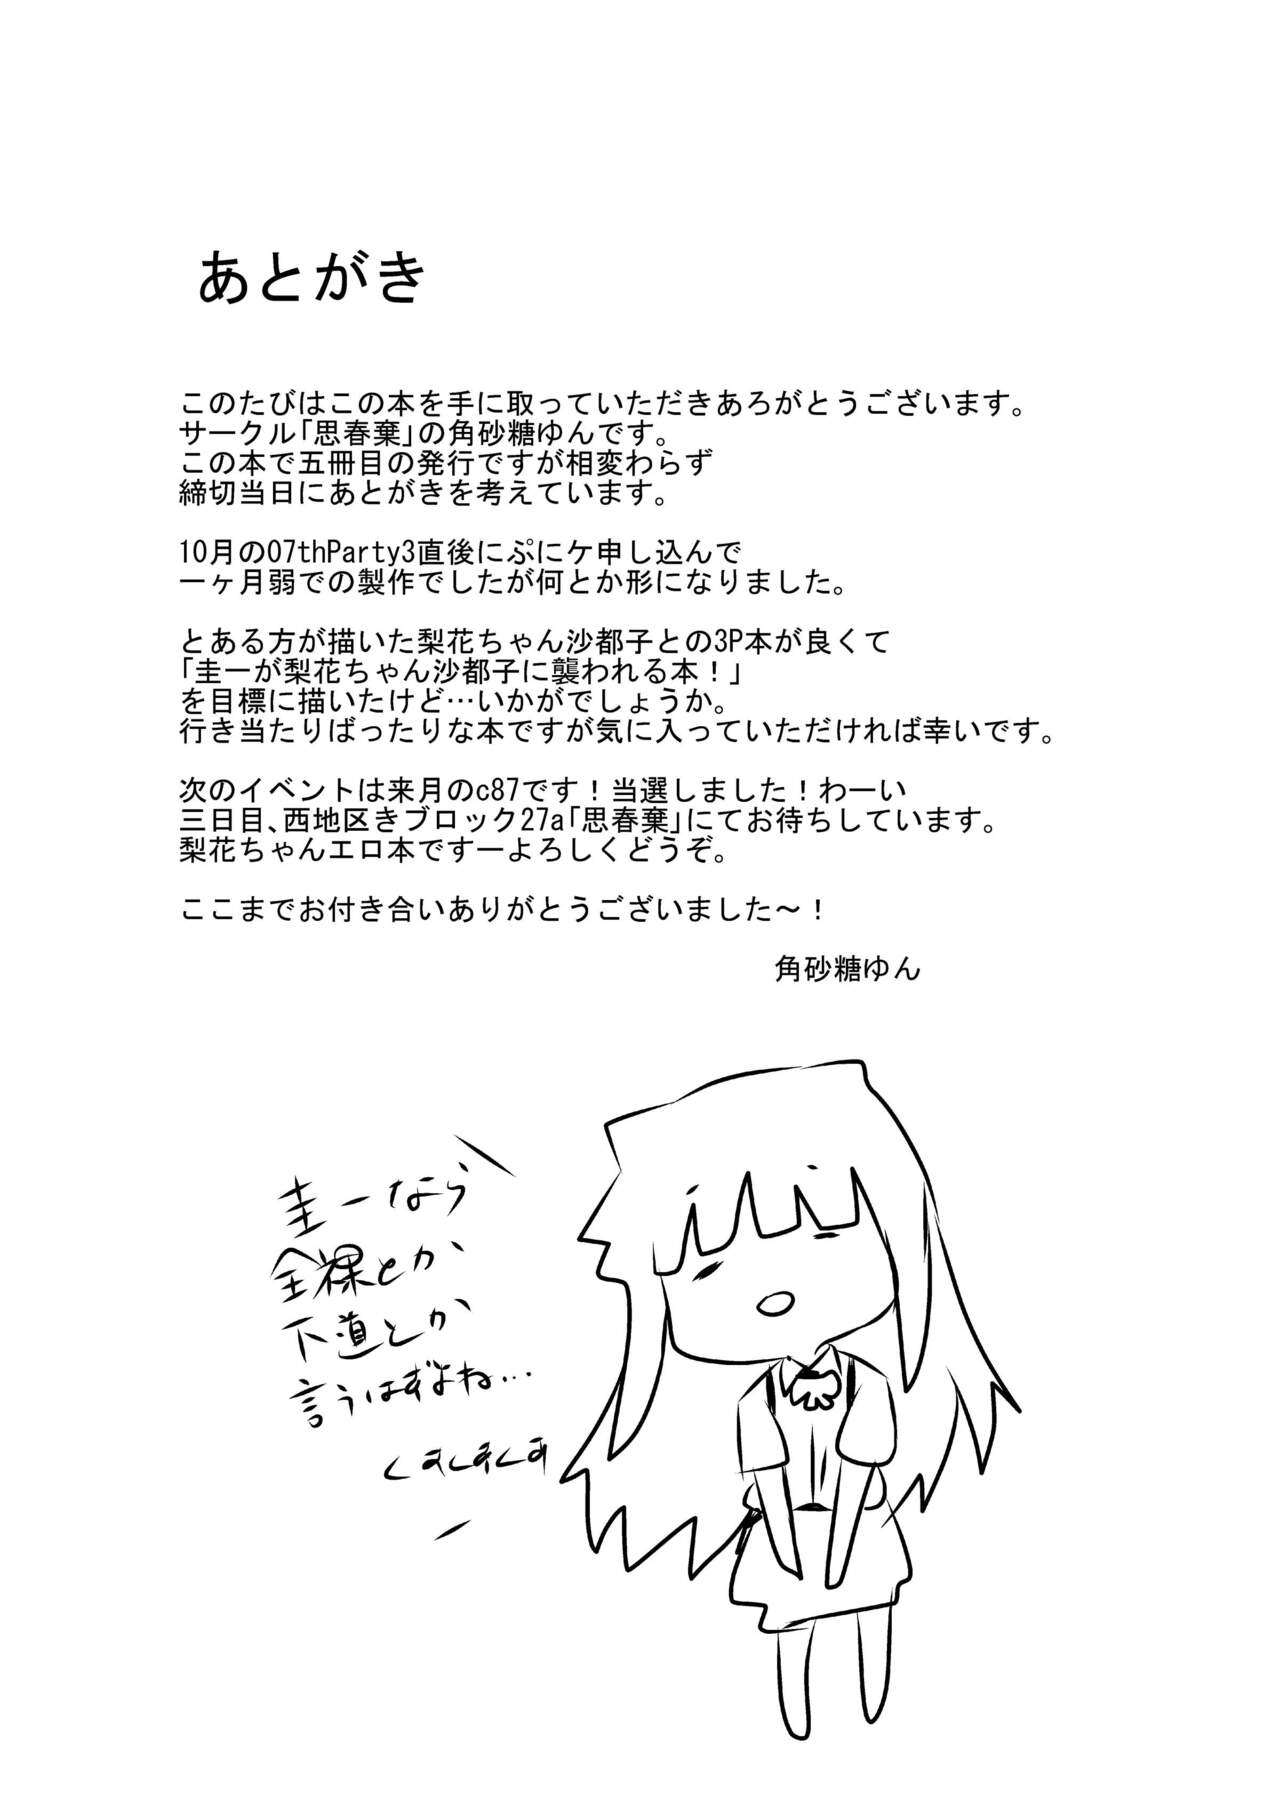 あとがき
このたびはこの本を手に取っていただきあろがとうございます。
サークル「思春棄」の角砂糖ゆんです。
この本で五冊目の発行ですが相変わらず
締切当日にあとがきを考えています。
10月の07thParty3直後にぷにケ申し込んで
一ヶ月弱での製作でしたが何とか形になりました。
とある方が描いた梨花ちゃん沙都子との3P本が良くて
「圭一が梨花ちゃん沙都子に襲われる本！」
を目標に描いたけど…いかがでしょうか。
行き当たりばったりな本ですが気に入っていただければ幸いです。
次のイベントは来月のc87です！当選しました！わーい
三日目、西地区きブロック27a「思春棄」にてお待ちしています。
梨花ちゃんエロ本ですーよろしくどうぞ。
ここまでお付き合いありがとうございました～！
角砂糖ゆん
圭一なら
全裸とか
下道とか
言うはずよね…